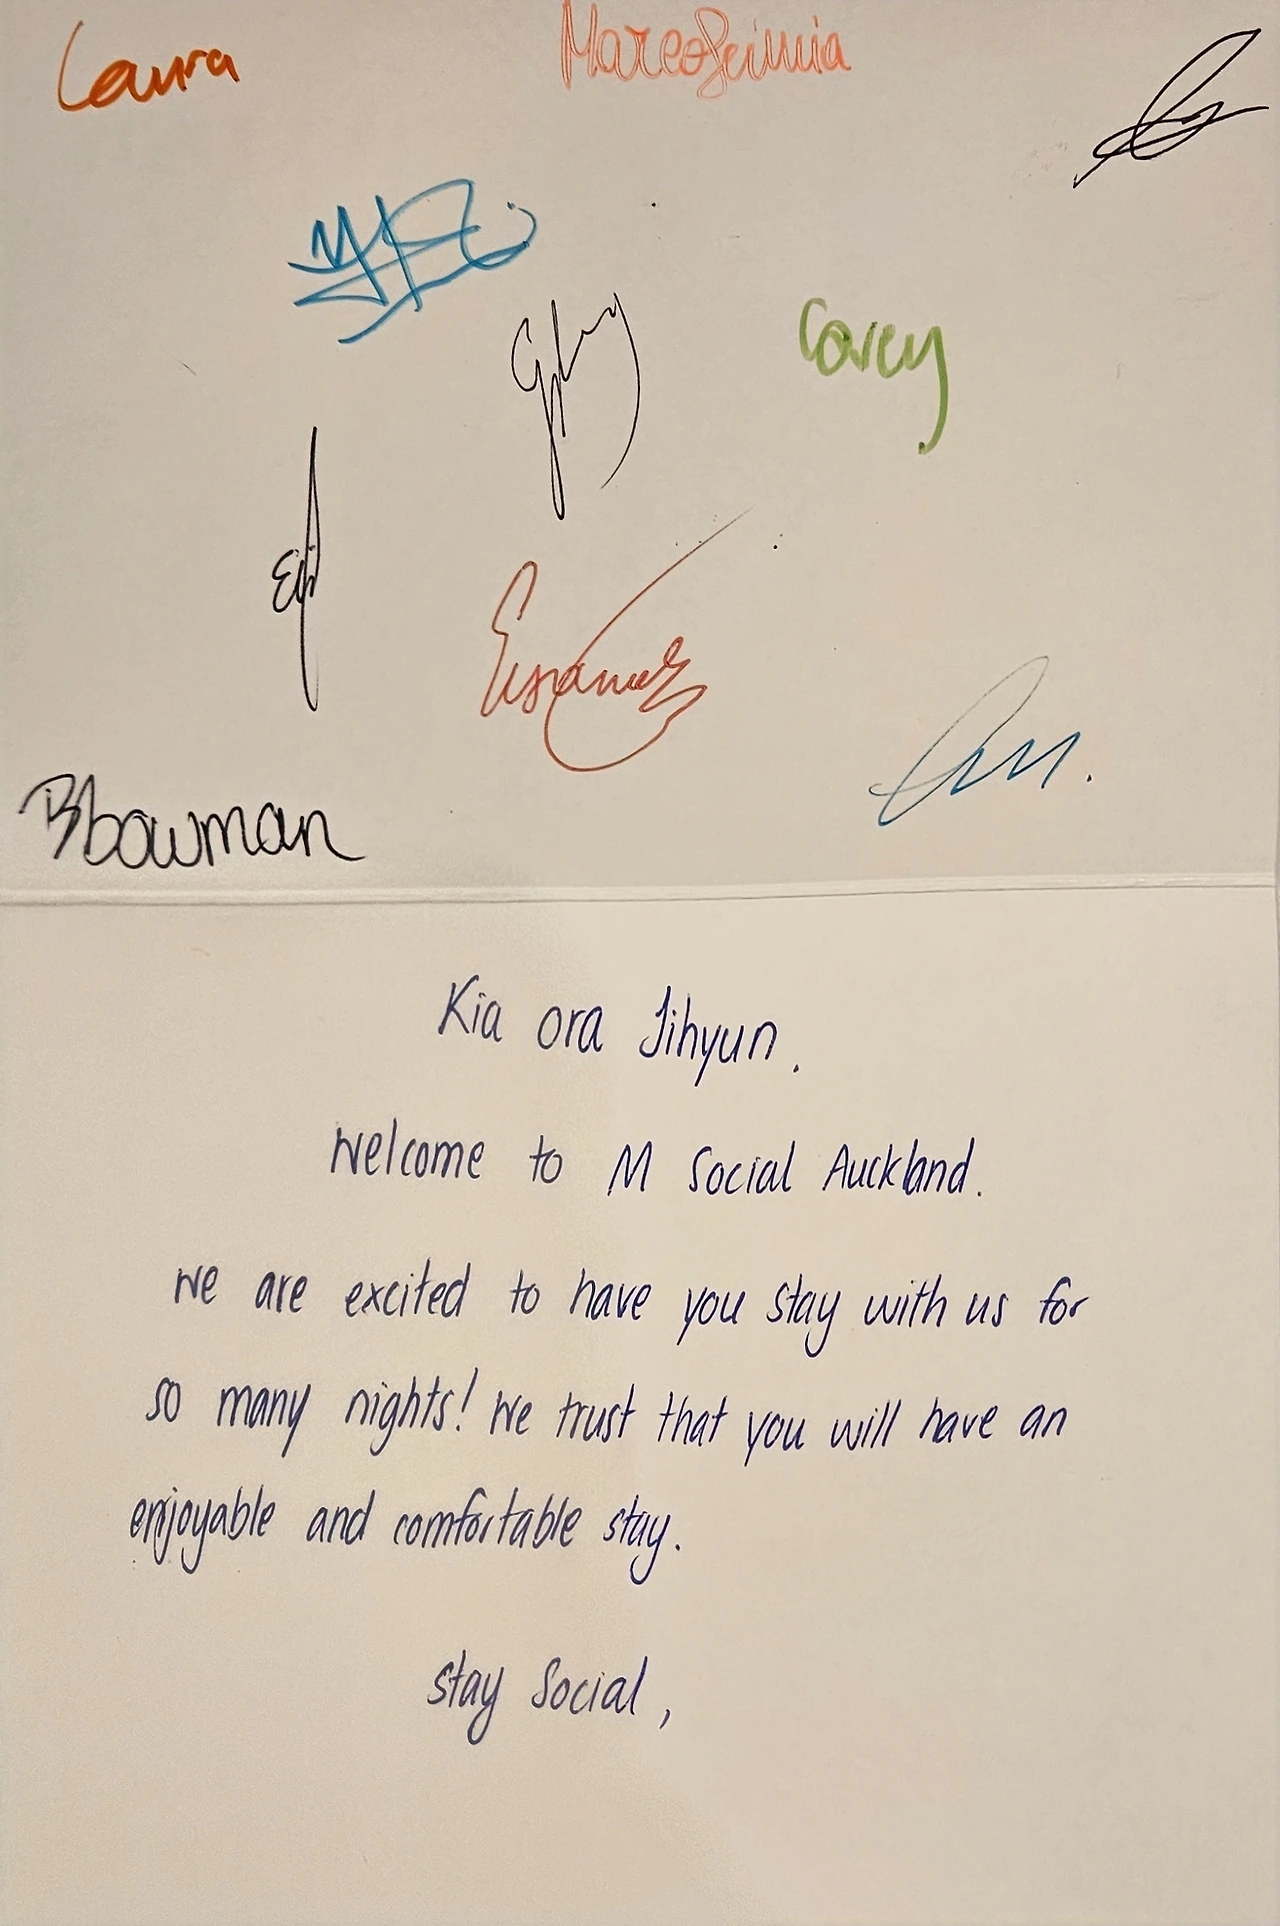 Laura
Corey
Bbowman
Kia ora Jihyun.
Welcome to M Social Auckland.
We are excited to have you stay with us for
so many nights! We trust that you will have an
enjoyable and comfortable stay.
Stay Social,